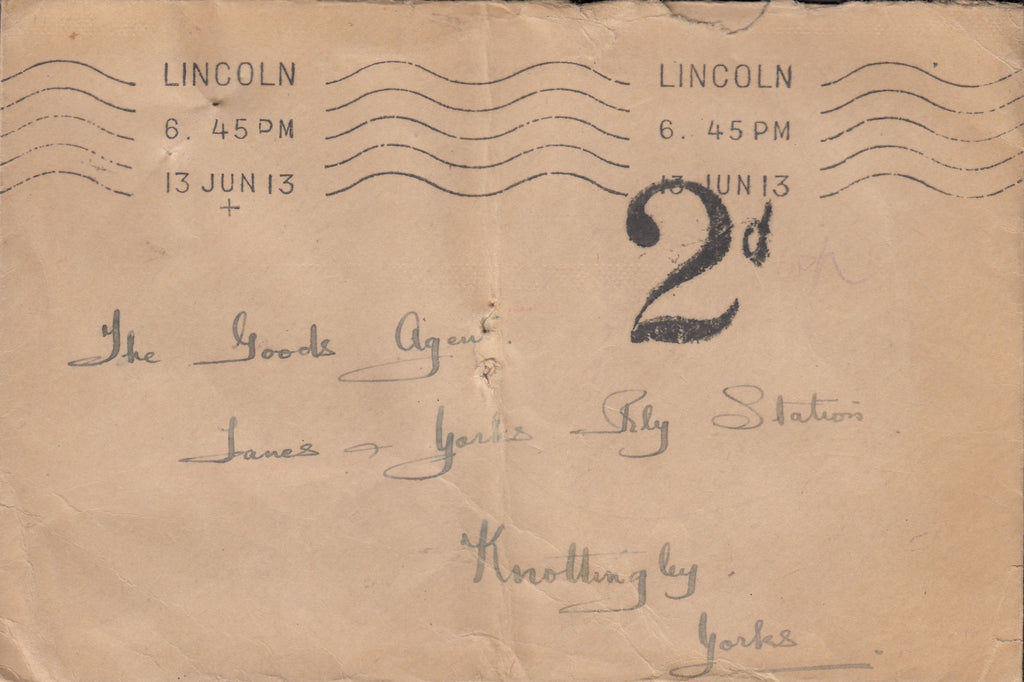 LINCOLN LINCOLN
6. 45 PM 6. 45 PM
13 JUN 13 13 JUN 13
2d
The Goods Agent.
Lanes & Yorks Rly Station
Knottingley.
Yorks